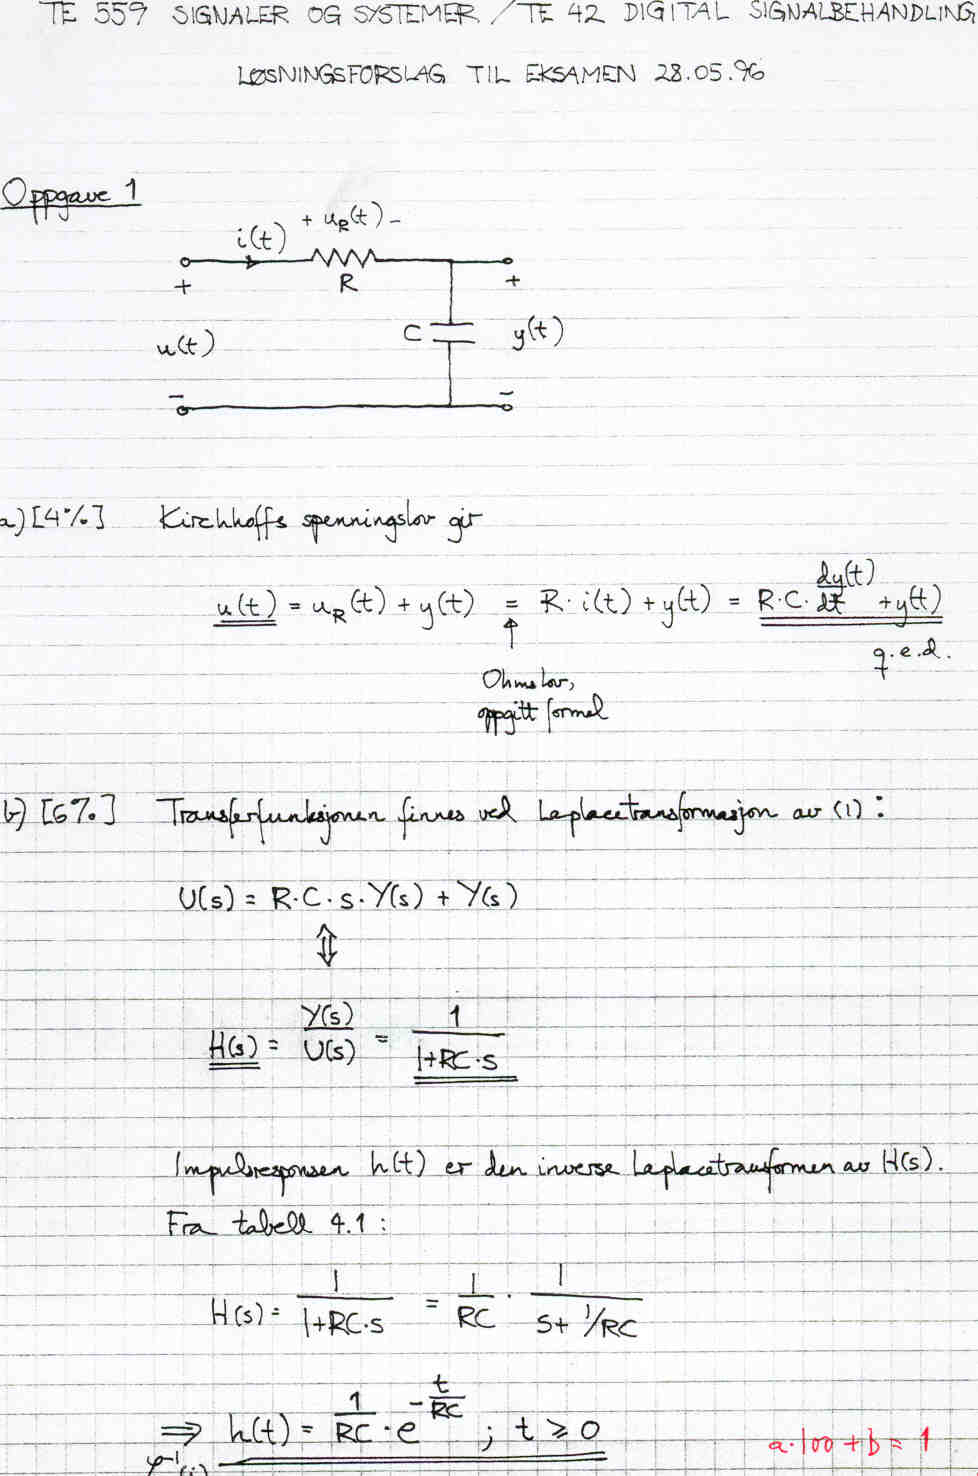 TE 559 SIGNALER OG SYSTEMER / TE 42 DIGITAL SIGNALBEHANDLING
LØSNINGSFORSLAG TIL EKSAMEN 28.05.96
Oppgave 1
+ u_R(t) -
i(t)
R
+ +
u(t) C y(t)
- -
a) [4%] Kirchhoffs spenningslov gir
u(t) = u_R(t) + y(t) = R·i(t) + y(t) = R·C·dy(t)/dt + y(t)
q.e.d.
↑
Ohms lov,
oppgitt formel
b) [6%] Transferfunksjonen finnes ved Laplacetransformasjon av (1):
U(s) = R·C·s·Y(s) + Y(s)
⇕
H(s) = Y(s)/U(s) = 1/(1+RC·s)
Impulsresponsen h(t) er den inverse Laplacetransformen av H(s).
Fra tabell 4.1:
H(s) = 1/(1+RC·s) = 1/RC · 1/(s+1/RC)
⇒ h(t) = 1/RC · e^(-t/RC) ; t ≥ 0
a·100 + b = 1